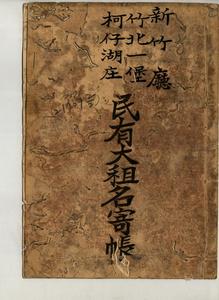 新竹廳
竹北一堡
柯仔湖庄
民有大租名寄帳